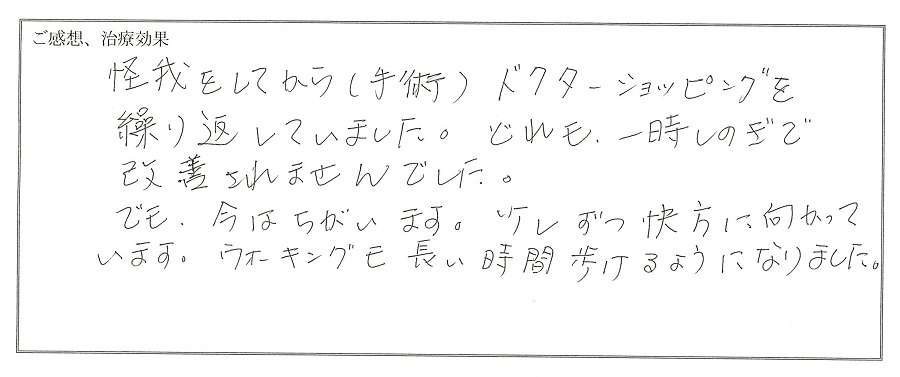 ご感想、治療効果
怪我をしてから(手術)ドクターショッピングを
繰り返していました。どれも、一時しのぎで
改善されませんでした。
でも、今はちがいます。少しずつ快方に向かって
います。ウォーキングも長い時間歩けるようになりました。